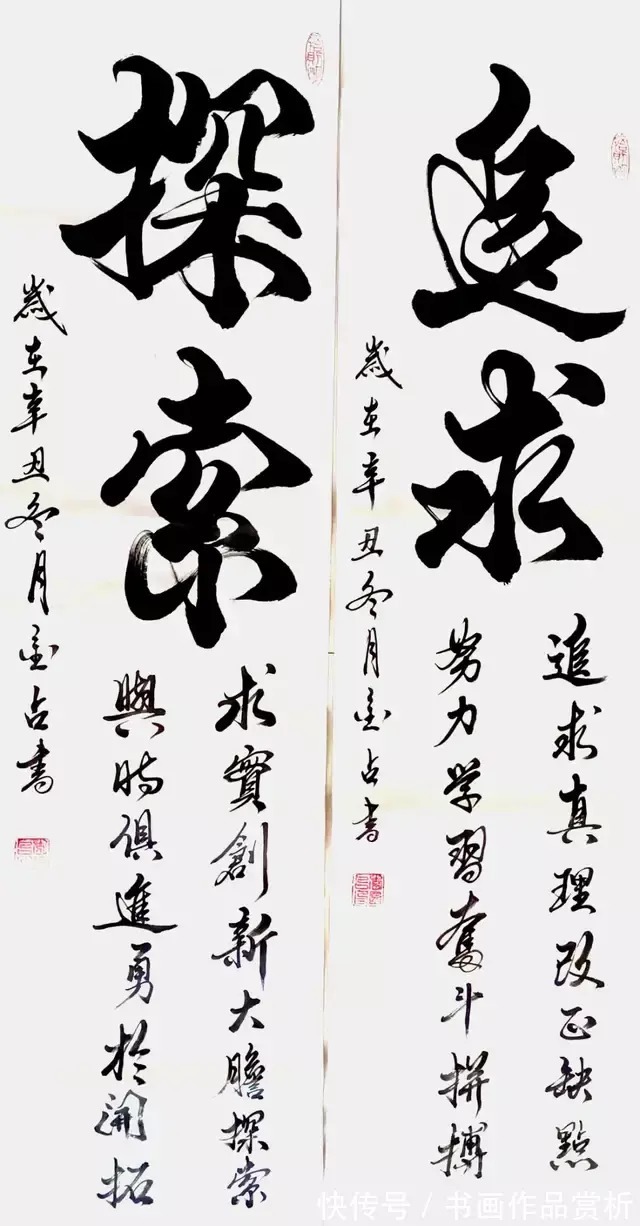 追求
追求真理改正缺點
努力学習奮斗拼搏
歲在辛丑冬月占書
探索
求實創新大膽探索
與時俱進勇於開拓
歲在辛丑冬月占書
快传号/书画作品赏析